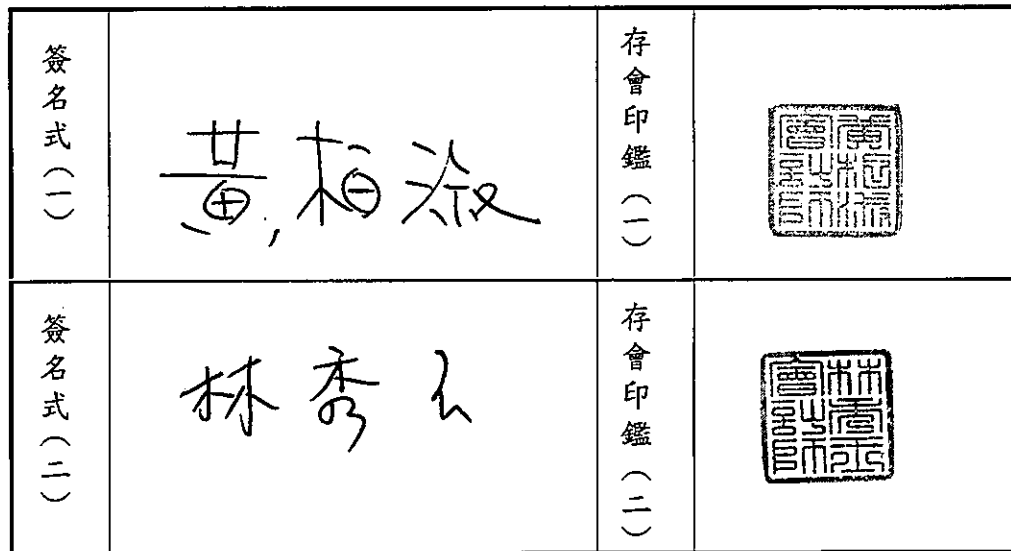 簽名式(一)
黃柏淑
存會印鑑(一)
黃柏淑
會計師
簽名式(二)
林秀
存會印鑑(二)
林秀玉
會計師